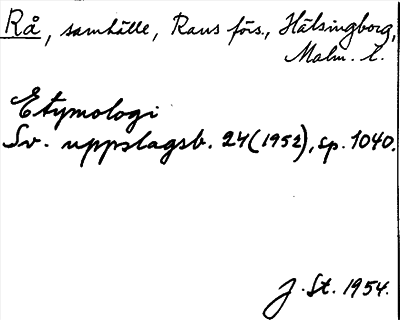 Rå, samhälle, Raus förs., Hälsingborg,
Malm. l.
Etymologi
Sv. uppslagsb. 24 (1952), sp. 1040.
J. St. 1954.